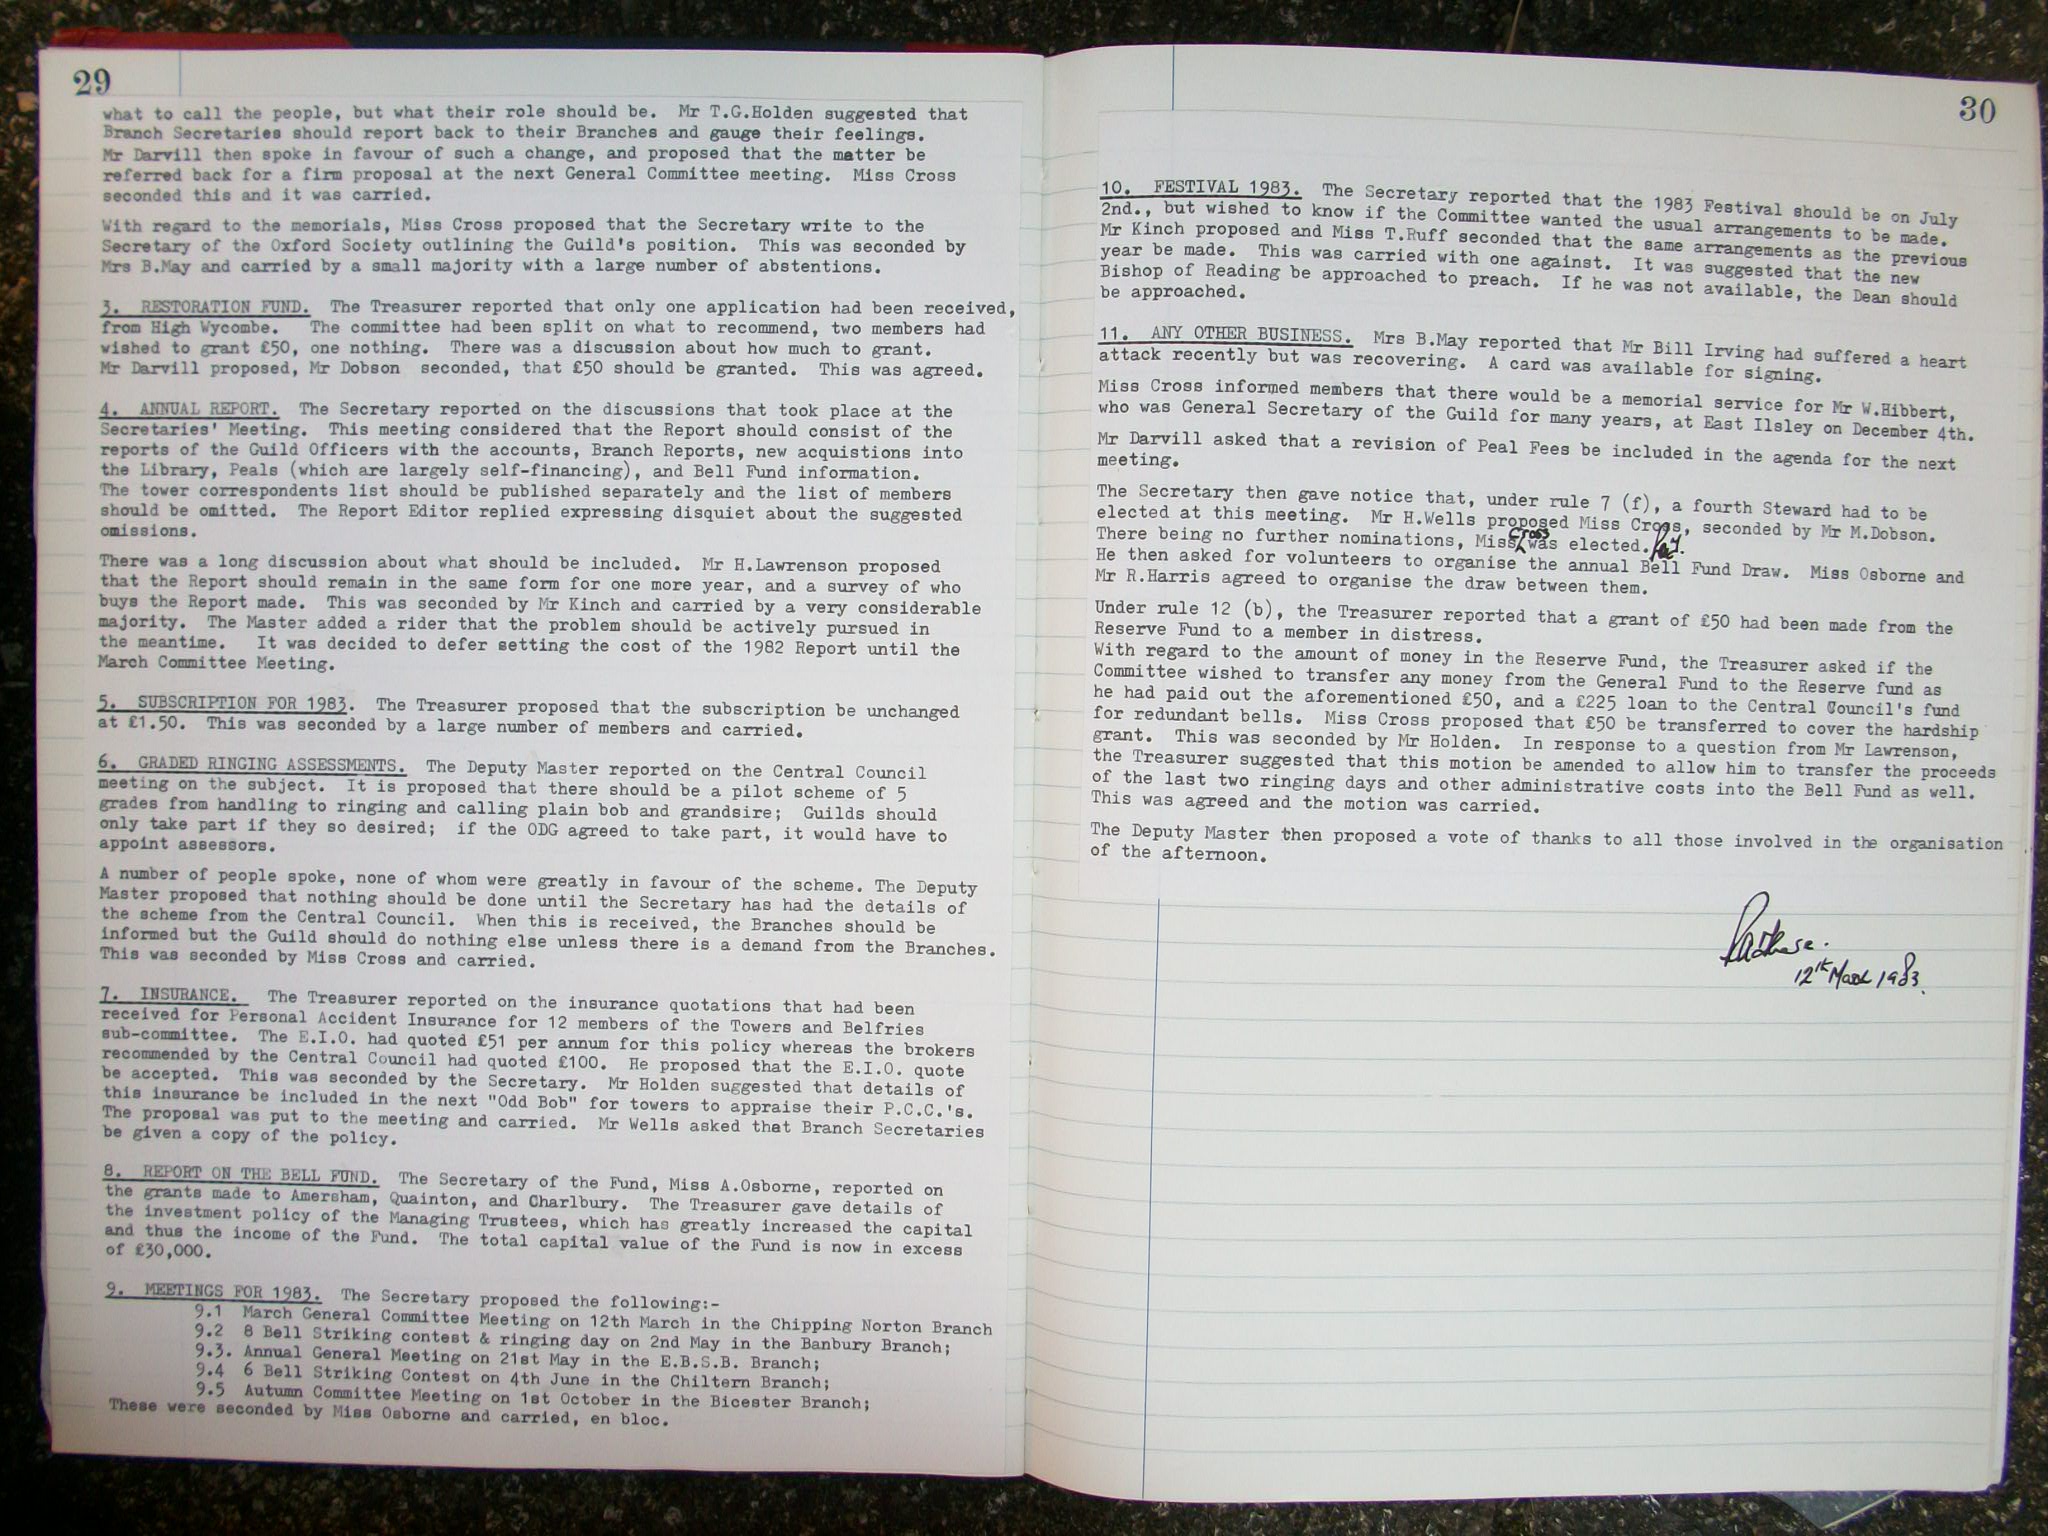 29
what to call the people, but what their role should be. Mr T.G.Holden suggested that
Branch Secretaries should report back to their Branches and gauge their feelings.
Mr Darvill then spoke in favour of such a change, and proposed that the matter be
referred back for a firm proposal at the next General Committee meeting. Miss Cross
seconded this and it was carried.
With regard to the memorials, Miss Cross proposed that the Secretary write to the
Secretary of the Oxford Society outlining the Guild's position. This was seconded by
Mrs B.May and carried by a small majority with a large number of abstentions.
3. RESTORATION FUND. The Treasurer reported that only one application had been received,
from High Wycombe. The committee had been split on what to recommend, two members had
wished to grant £50, one nothing. There was a discussion about how much to grant.
Mr Darvill proposed, Mr Dobson seconded, that £50 should be granted. This was agreed.
4. ANNUAL REPORT. The Secretary reported on the discussions that took place at the
Secretaries' Meeting. This meeting considered that the Report should consist of the
reports of the Guild Officers with the accounts, Branch Reports, new acquistions into
the Library, Peals (which are largely self-financing), and Bell Fund information.
The tower correspondents list should be published separately and the list of members
should be omitted. The Report Editor replied expressing disquiet about the suggested
omissions.
There was a long discussion about what should be included. Mr H.Lawrenson proposed
that the Report should remain in the same form for one more year, and a survey of who
buys the Report made. This was seconded by Mr Kinch and carried by a very considerable
majority. The Master added a rider that the problem should be actively pursued in
the meantime. It was decided to defer setting the cost of the 1982 Report until the
March Committee Meeting.
5. SUBSCRIPTION FOR 1983. The Treasurer proposed that the subscription be unchanged
at £1.50. This was seconded by a large number of members and carried.
6. GRADED RINGING ASSESSMENTS. The Deputy Master reported on the Central Council
meeting on the subject. It is proposed that there should be a pilot scheme of 5
grades from handling to ringing and calling plain bob and grandsire; Guilds should
only take part if they so desired; if the ODG agreed to take part, it would have to
appoint assessors.
A number of people spoke, none of whom were greatly in favour of the scheme. The Deputy
Master proposed that nothing should be done until the Secretary has had the details of
the scheme from the Central Council. When this is received, the Branches should be
informed but the Guild should do nothing else unless there is a demand from the Branches.
This was seconded by Miss Cross and carried.
7. INSURANCE. The Treasurer reported on the insurance quotations that had been
received for Personal Accident Insurance for 12 members of the Towers and Belfries
sub-committee. The E.I.O. had quoted £51 per annum for this policy whereas the brokers
recommended by the Central Council had quoted £100. He proposed that the E.I.O. quote
be accepted. This was seconded by the Secretary. Mr Holden suggested that details of
this insurance be included in the next "Odd Bob" for towers to appraise their P.C.C.'s.
The proposal was put to the meeting and carried. Mr Wells asked that Branch Secretaries
be given a copy of the policy.
8. REPORT ON THE BELL FUND. The Secretary of the Fund, Miss A.Osborne, reported on
the grants made to Amersham, Quainton, and Charlbury. The Treasurer gave details of
the investment policy of the Managing Trustees, which has greatly increased the capital
and thus the income of the Fund. The total capital value of the Fund is now in excess
of £30,000.
9. MEETINGS FOR 1983. The Secretary proposed the following:-
9.1 March General Committee Meeting on 12th March in the Chipping Norton Branch
9.2 8 Bell Striking contest & ringing day on 2nd May in the Banbury Branch;
9.3. Annual General Meeting on 21st May in the E.B.S.B. Branch;
9.4 6 Bell Striking Contest on 4th June in the Chiltern Branch;
9.5 Autumn Committee Meeting on 1st October in the Bicester Branch;
These were seconded by Miss Osborne and carried, en bloc.
30
10. FESTIVAL 1983. The Secretary reported that the 1983 Festival should be on July
2nd., but wished to know if the Committee wanted the usual arrangements to be made.
Mr Kinch proposed and Miss T.Ruff seconded that the same arrangements as the previous
year be made. This was carried with one against. It was suggested that the new
Bishop of Reading be approached to preach. If he was not available, the Dean should
be approached.
11. ANY OTHER BUSINESS. Mrs B.May reported that Mr Bill Irving had suffered a heart
attack recently but was recovering. A card was available for signing.
Miss Cross informed members that there would be a memorial service for Mr W.Hibbert,
who was General Secretary of the Guild for many years, at East Ilsley on December 4th.
Mr Darvill asked that a revision of Peal Fees be included in the agenda for the next
meeting.
The Secretary then gave notice that, under rule 7 (f), a fourth Steward had to be
elected at this meeting. Mr H.Wells proposed Miss Cross, seconded by Mr M.Dobson.
There being no further nominations, Miss Cross was elected.
He then asked for volunteers to organise the annual Bell Fund Draw. Miss Osborne and
Mr R.Harris agreed to organise the draw between them.
Under rule 12 (b), the Treasurer reported that a grant of £50 had been made from the
Reserve Fund to a member in distress.
With regard to the amount of money in the Reserve Fund, the Treasurer asked if the
Committee wished to transfer any money from the General Fund to the Reserve fund as
he had paid out the aforementioned £50, and a £225 loan to the Central Council's fund
for redundant bells. Miss Cross proposed that £50 be transferred to cover the hardship
grant. This was seconded by Mr Holden. In response to a question from Mr Lawrenson,
the Treasurer suggested that this motion be amended to allow him to transfer the proceeds
of the last two ringing days and other administrative costs into the Bell Fund as well.
This was agreed and the motion was carried.
The Deputy Master then proposed a vote of thanks to all those involved in the organisation
of the afternoon.
12th March 1983.